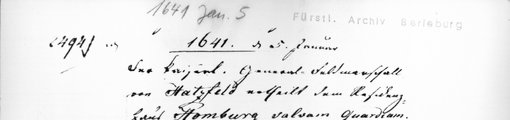 1641 Jan. 5
Fürstl. Archiv Berleburg
(494)
1641. d. 5. Januar
Der Kaiserl. General-Feldmarschall
von Hatzfeld ertheilt dem Residenz-
haus Homburg salvam Guardiam.